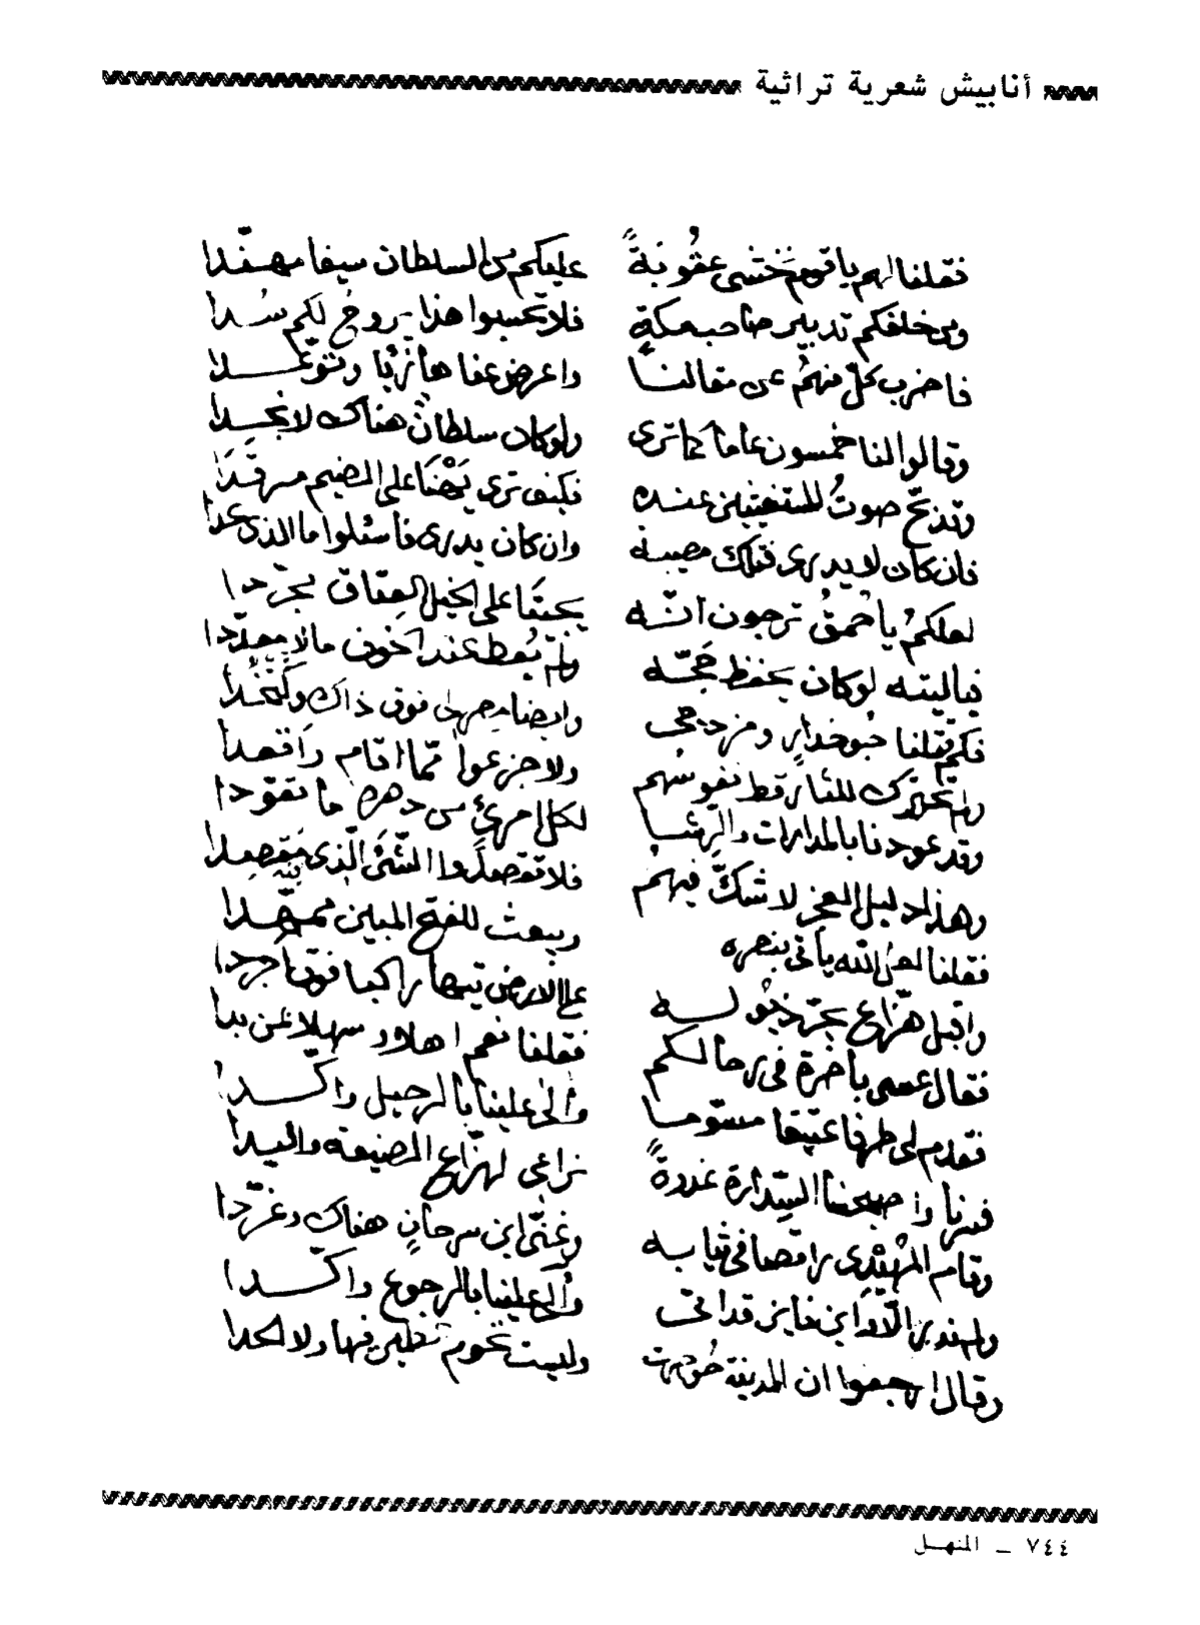 أنابيش شعرية تراثية
فقلنا لهم يا قوم نخشى عقوبةً عليكم من السلطان سيفا مهنّدا
ومن خلفكم تدبير صاحب مكةٍ فلا تحسبوا هذا يروح لكم سُدا
فاضرب كلّ منهمُ عن مقالنا واعرض عنا هازئًا وتوعّدا
وقالوا لنا خمسون عاما كما ترى ولو كان سلطانٌ هناك لانجدا
وتذبح صوتُ للمستغيثين عنده فكيف ترى يهنا على الضيم مرقدا
فان كان لا يدرى فتلك مصيبة وان كان يدرى فاسئلوا ما الذى عدا
لعلكمُ يا حمقُ ترجون انّه يجيئا على الخيل العتاق مجرّدا
فياليته لو كان يحفظ حجّه ولم يُعط عند الخوف مالا معدّدا
فكم قتلنا جوخدارٍ ومزدهجى وايضا مهردى فوق ذاك وكتخدا
ولم تحترك للثار قط نفوسهم ولا جزعوا ممّا اقام واقعدا
وقد عودنا بالمدارات والرشا لكل امرئ من دهره ما تعوّدا
وهذا دليل العجز لا شكّ فيهم فلا تقصدوا الشئ الّذى فيه
فقلنا لعل الله يأتى بنصره ويبعث للفتح المبين ممهّدا
واقبل هزّاع يجرّ ذيوله على الارض تيها راكبا فوق اجردا
فقال عسى ياخرة فى رحالكم فقلنا نعم اهلا وسهلا بمن بدا
فقدم لى طرفا عتيقا مسوّما وألى علينا بالرحيل واكّدا
فسرنا واصبحنا السّدارة غدوةً نراعى لهزّاع الصنيعة واليدا
وقام المهْيْدى راقصا فى ثيابه وغنّى ابن سرحانٍ هناك وغرّدا
ولم ندر الّا وابن فايز قد اتى وألى علينا بالرجوع واكّدا
وقال ارجعوا ان المدينة حُوصرت وليست تحوم الطير فيها ولا الحدا
٧٤٤ ــ المنهـل